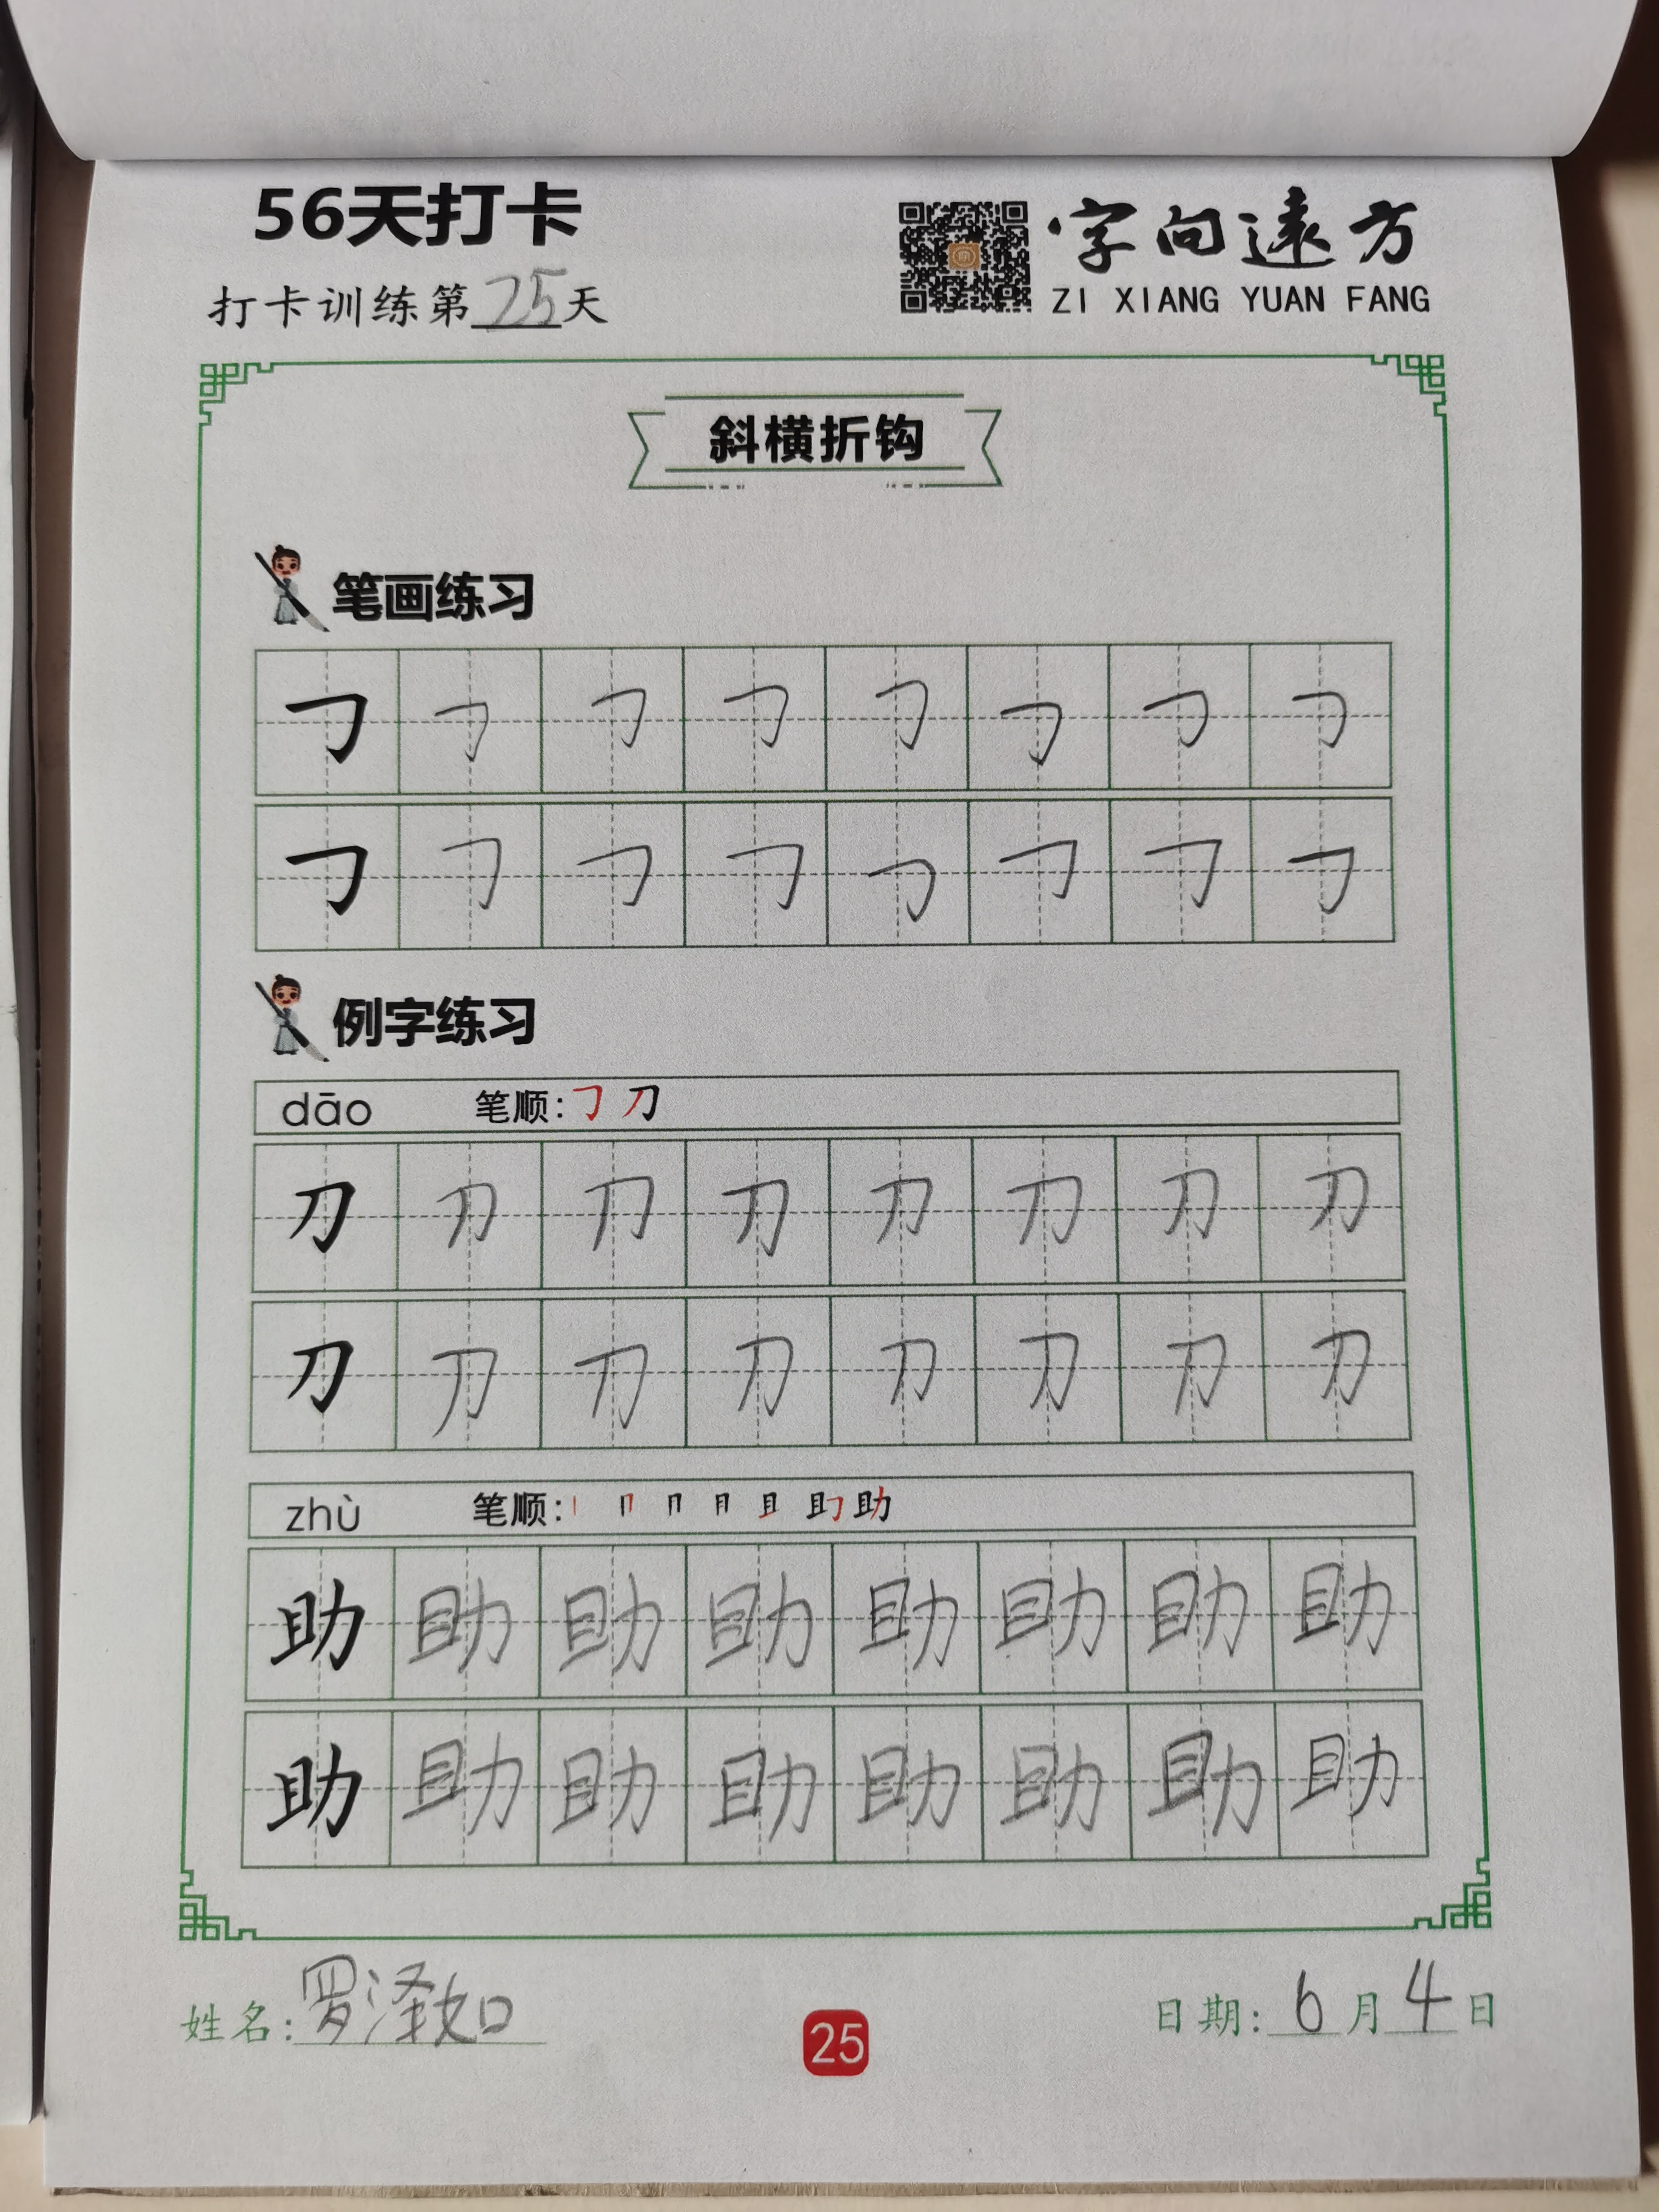 56天打卡
字向遠方
打卡训练第25天
ZI XIANG YUAN FANG
斜横折钩
笔画练习
𠃌 𠃌 𠃌 𠃌 𠃌 𠃌 𠃌 𠃌
𠃌 𠃌 𠃌 𠃌 𠃌 𠃌 𠃌 𠃌
例字练习
dāo 笔顺: 𠃌 刀
刀 刀 刀 刀 刀 刀 刀 刀
刀 刀 刀 刀 刀 刀 刀 刀
zhù 笔顺: 丨 冂 月 且 助
助 助 助 助 助 助 助 助
助 助 助 助 助 助 助 助
姓名: 罗泽如
25
日期: 6月4日